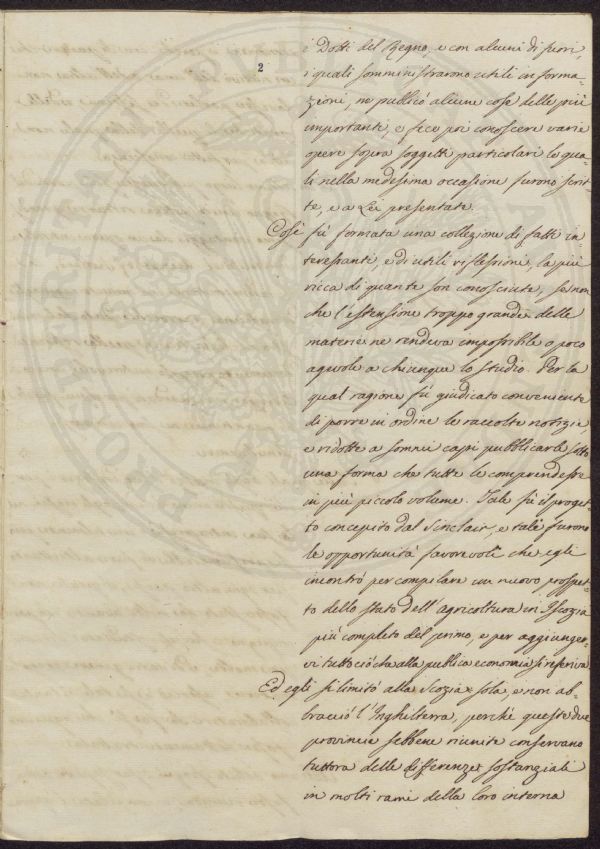 2
i Dotti del Regno, e con alcuni di fuori,
i quali somministrarono utili informa-
zioni, ne publicò alcune cose delle più
importanti, e fece poi conoscere varie
opere sopra soggetti particolari le qua-
li nella medesima occasione furono scrit-
te, e a Lei presentate.
Così fù formata una collezione di fatti in-
teressanti, e di utili riflessioni, la più
ricca di quante son conosciute, se non
che l'estensione troppo grande delle
materie ne rendeva impossibile o poco
agevole a chiunque lo studio. Per la
qual ragione fù giudicato conveniente
di porre in ordine le raccolte notizie,
e ridotte a sommi capi pubblicarle sotto
una forma che tutte le comprendesse
in più piccolo volume. Tale fù il proget-
to concepito dal Sinclair, e tale furono
le opportunità favorevoli che egli
incontrò per compilare un nuovo prospet-
to dello stato dell'agricoltura in Iscozia
più completo del primo, e per aggiunger-
vi tuttociò che alla publica economia si riferiva
Ed egli si limitò alla Scozia sola, e non ab-
bracciò l'Inghilterra, perchè queste due
provincie sebbene riunite conservano
tuttora delle differenze sostanziali
in molti rami della loro interna